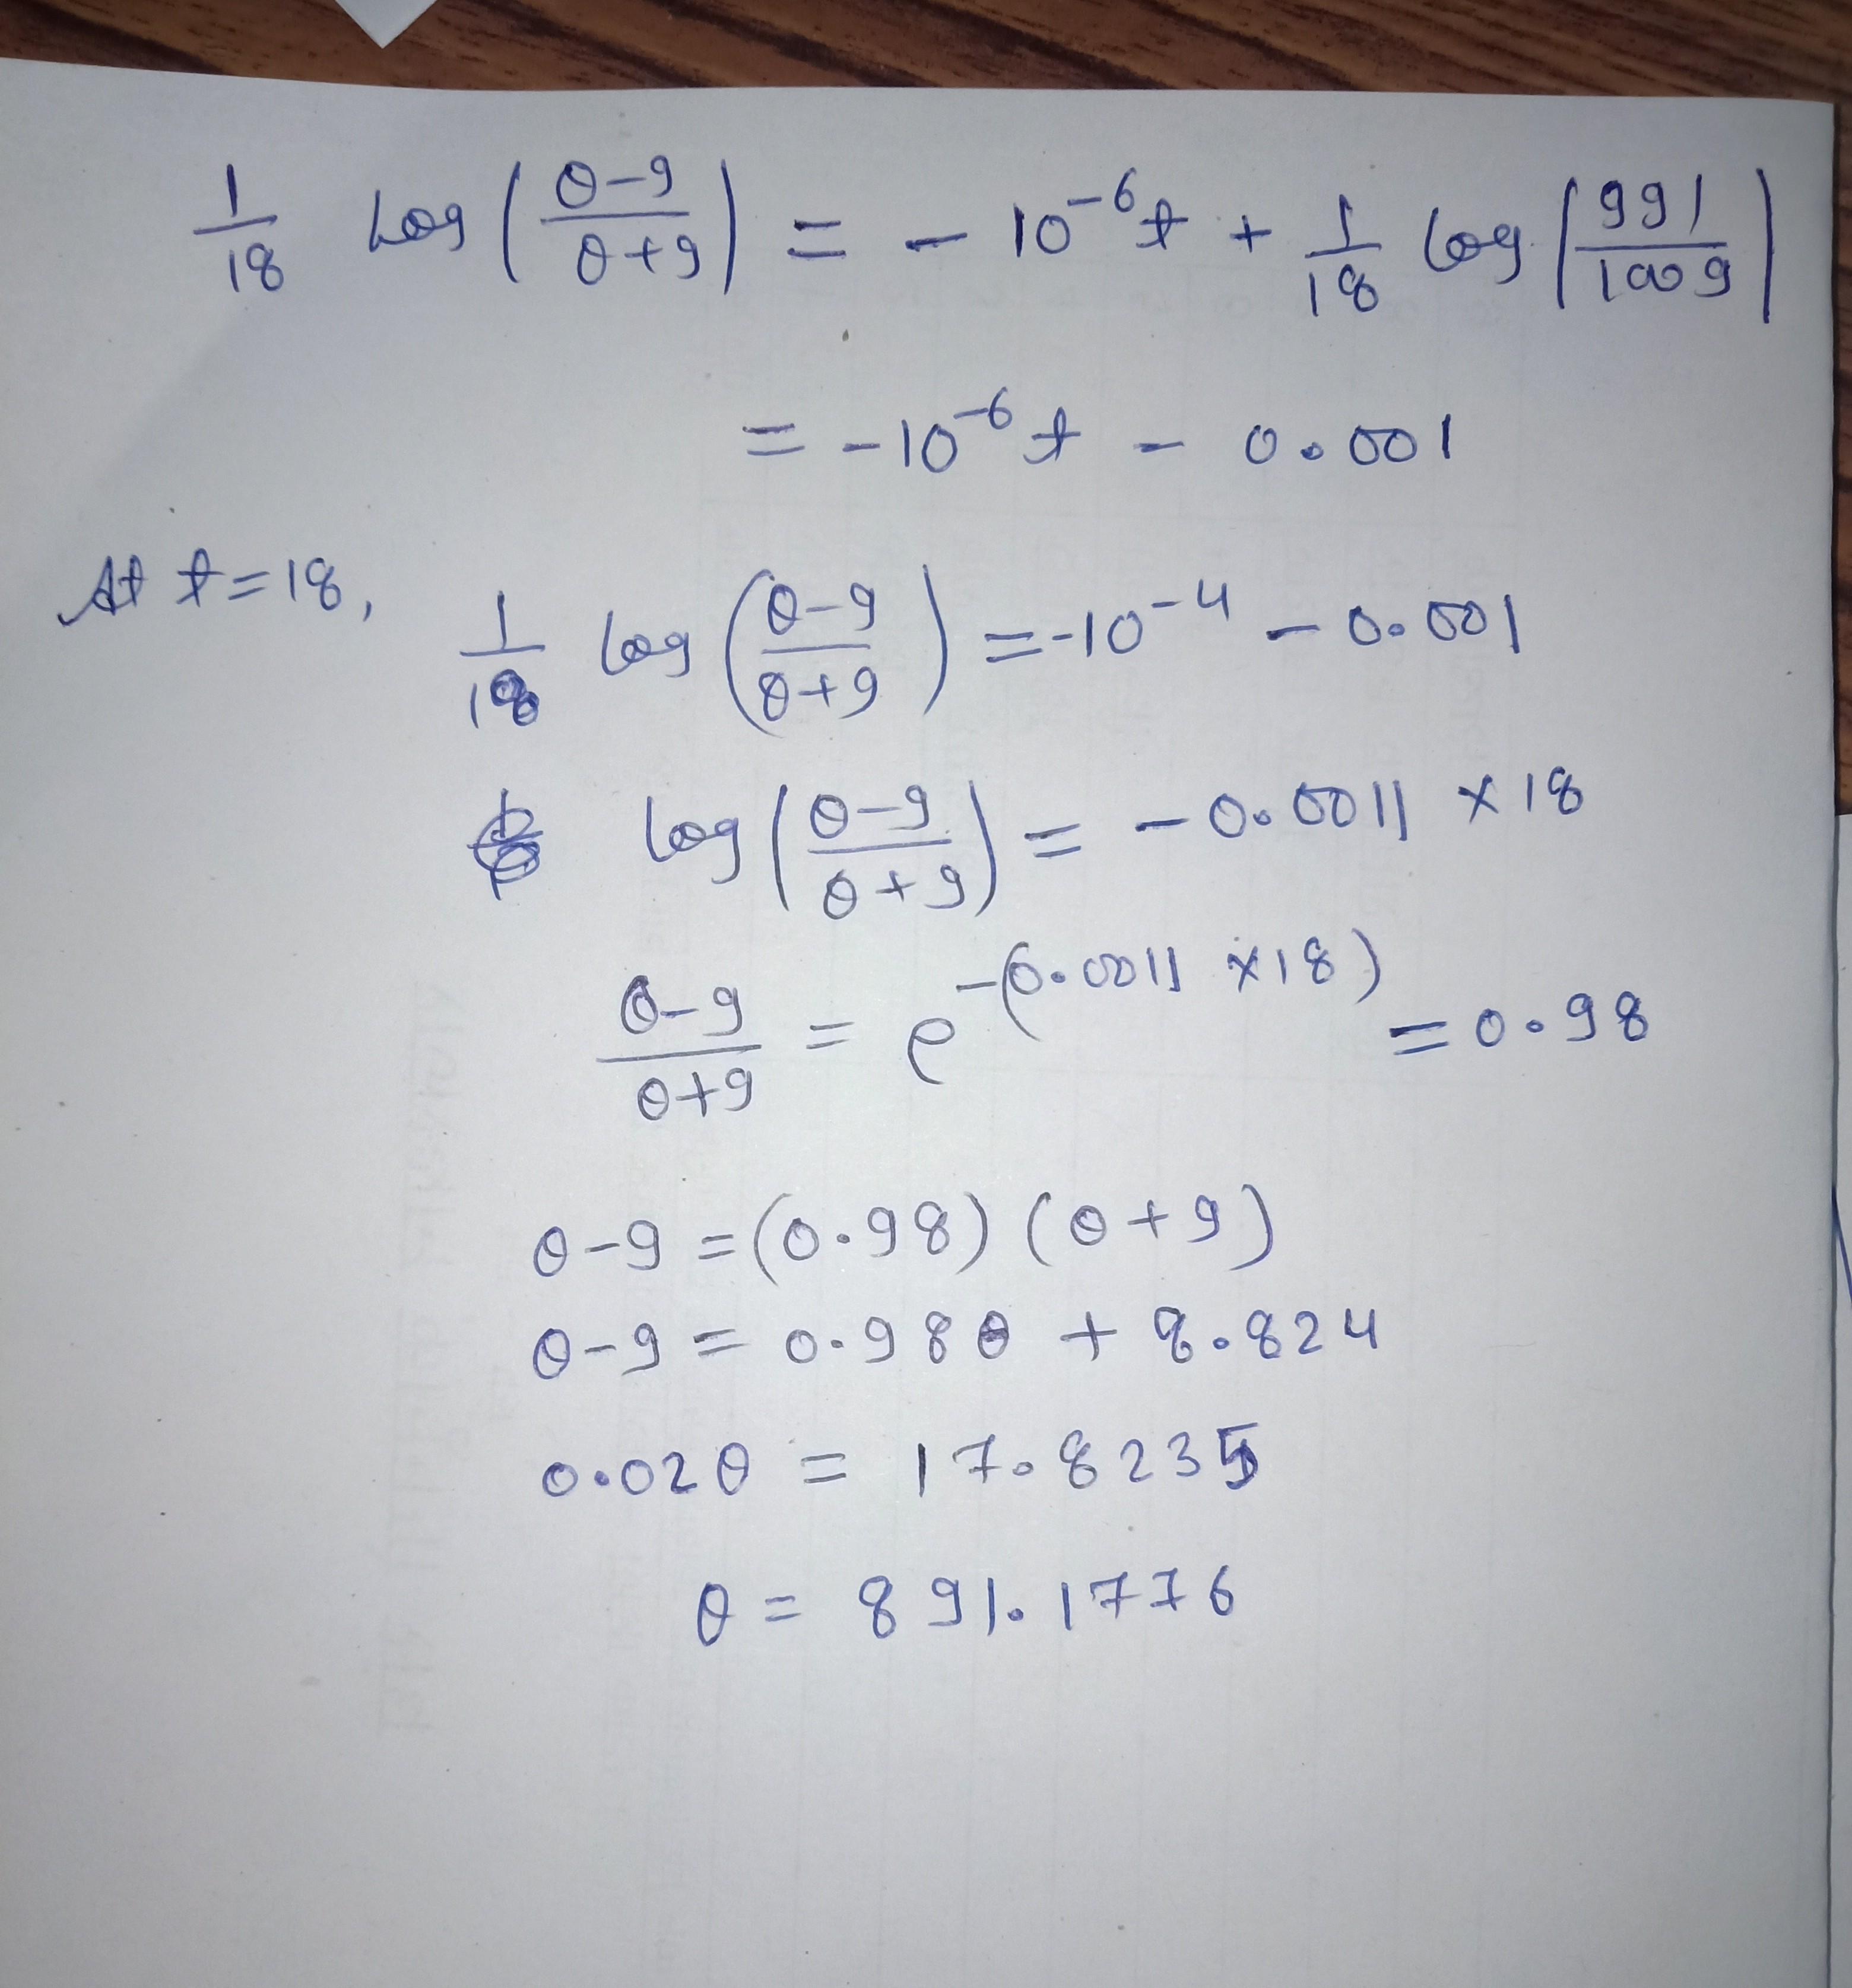 1/18 log (θ-9/θ+9) = - 10⁻⁶t + 1/18 log (991/1009)
= -10⁻⁶t - 0.001
At t=18, 1/18 log (θ-9/θ+9) = -10⁻⁴ - 0.001
log (θ-9/θ+9) = - 0.0011 × 18
θ-9/θ+9 = e^-(0.0011 × 18) = 0.98
θ-9 = (0.98) (θ+9)
θ-9 = 0.98θ + 8.824
0.02θ = 17.8235
θ = 891.1776